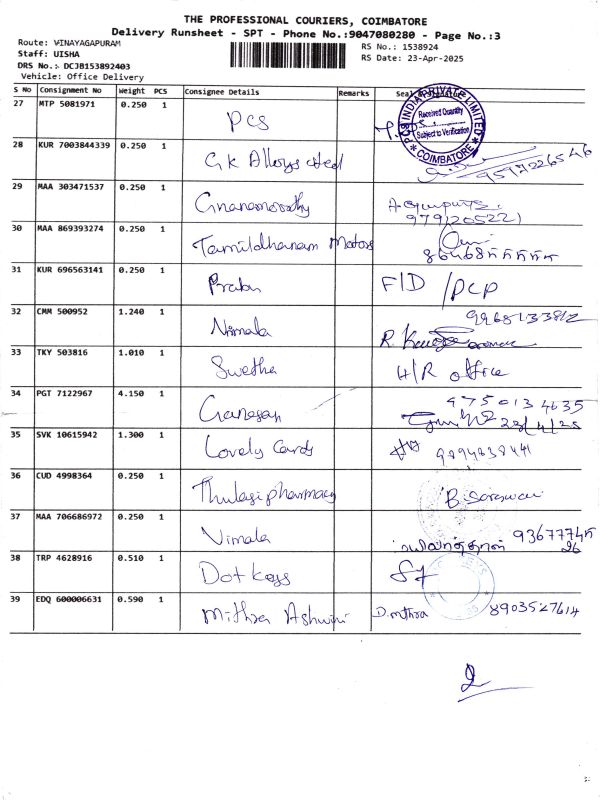 THE PROFESSIONAL COURIERS, COIMBATORE
Delivery Runsheet - SPT - Phone No.:9047080280 - Page No.:3
Route: VINAYAGAPURAM
Staff: UISHA
DRS No.: DCJB153892403
Vehicle: Office Delivery
RS No.: 1538924
RS Date: 23-Apr-2025
S No Consignment No Weight PCS Consignee Details Remarks Seal
27 MTP 5081971 0.250 1 PCS
PCS INDIA PRIVATE LIMITED
Received Quantity
Subject to Verification
* COIMBATORE *
28 KUR 7003844339 0.250 1 G K Alloys steel
29 MAA 303471537 0.250 1 Gnanamoorthy 9791205221
30 MAA 869393274 0.250 1 Tamildhanam Motors
31 KUR 696563141 0.250 1 Prabu F/D /PCP
32 CMM 500952 1.240 1 Nirmala
33 TKY 503816 1.010 1 Swetha H/R office
34 PGT 7122967 4.150 1 Ganesan 9750134635
23/4/25
35 SVK 10615942 1.300 1 Lovely Cards
36 CUD 4998364 0.250 1 Thulasi pharmacy B. Saraswati
37 MAA 706686972 0.250 1 Vimala
38 TRP 4628916 0.510 1 Dot keys
39 EDQ 600006631 0.590 1 Mithra Ashwini D. mithra 8903527614